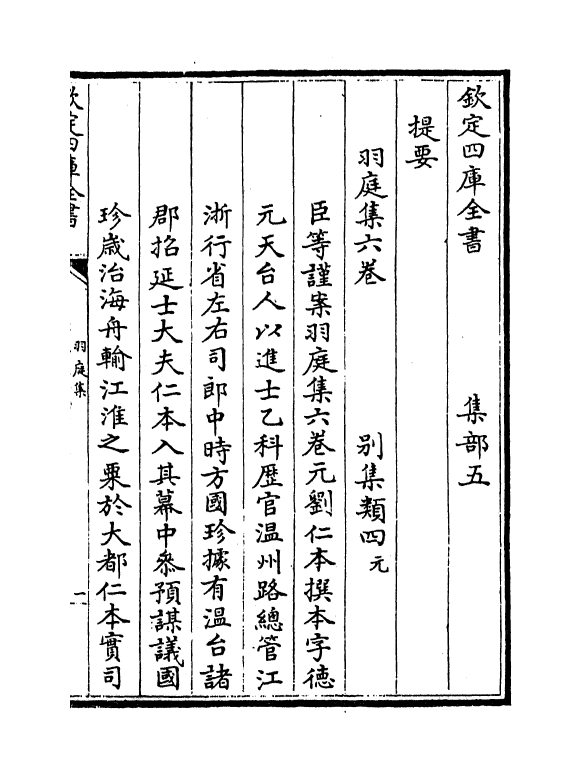 欽定四庫全書　集部五
提要
羽庭集六卷　別集類四元
臣等謹案羽庭集六卷元劉仁本撰本字徳
元天台人以進士乙科歴官温州路總管江
浙行省左右司郎中時方國珍據有温台諸
郡招延士大夫仁本入其幕中叅預謀議國
珍歳治海舟輸江淮之粟於大都仁本實司
欽定四庫全書
羽庭集
一